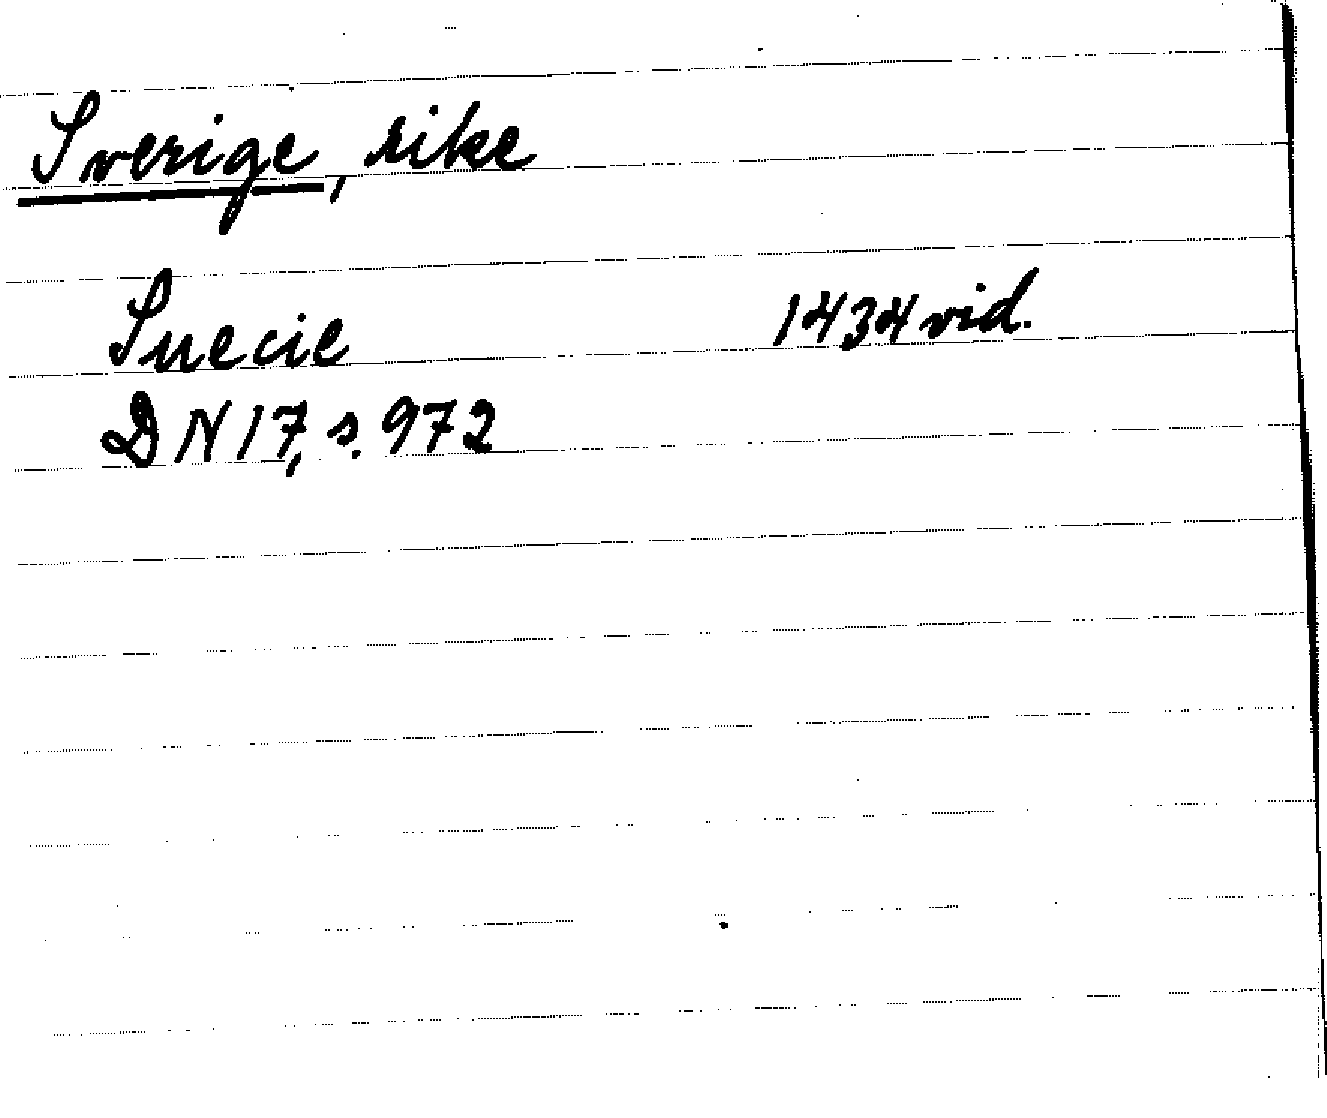 Sverige, rike
Suecie 1434 vid.
DN 17, s. 972